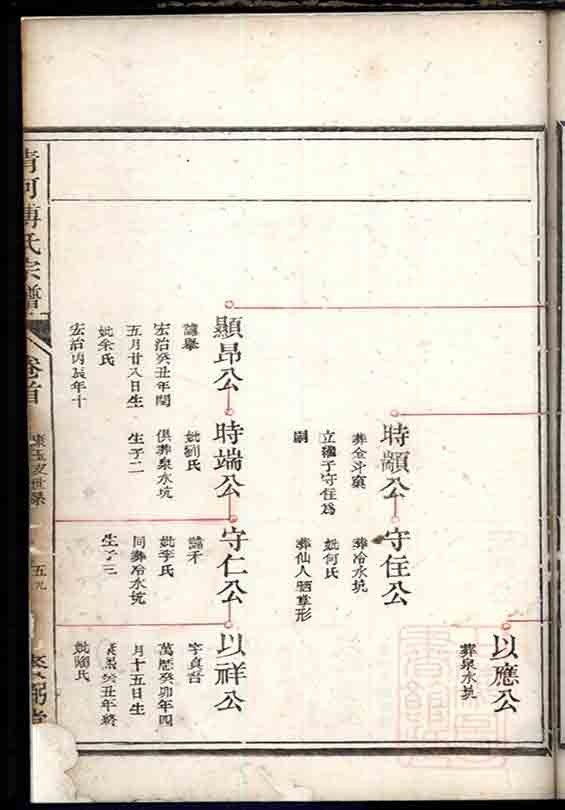 以應公
葬泉水坑
時顓公
葬金斗窠
立繼子守住爲
嗣
守住公
葬冷水坑
妣何氏
葬仙人晒掌形
顯昂公
諱舉
宏治癸丑年閏
五月廿八日生
妣余氏
宏治丙辰年十
時端公
妣劉氏
俱葬泉水坑
生子二
守仁公
妣李氏
同葬冷水坑
生子三
以祥公
萬厯癸卯年四
月十五日生
癸丑年終
氏
清河傅氏宗譜
卷首
世錄
五九